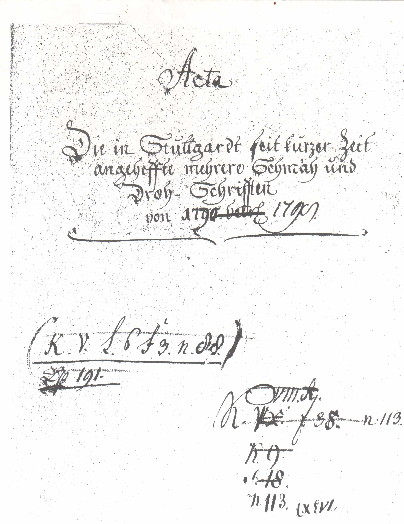 Acta
Die in Stuttgardt seit kurzer Zeit
angeheffte mehrere Schmäh und
Droh-Schrifften
von 1790
(K. V. L. 6 f 3. n. 88.)
191.
K. f 38. n 113.
K 9
18.
n 113